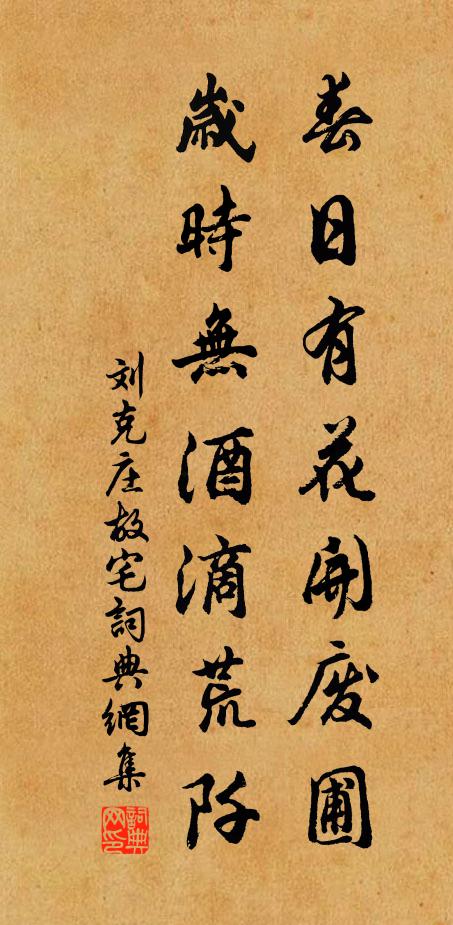 春日有花開废圃
歲時無酒滴荒阡
刘克庄故宅詞典網集
詞典网印